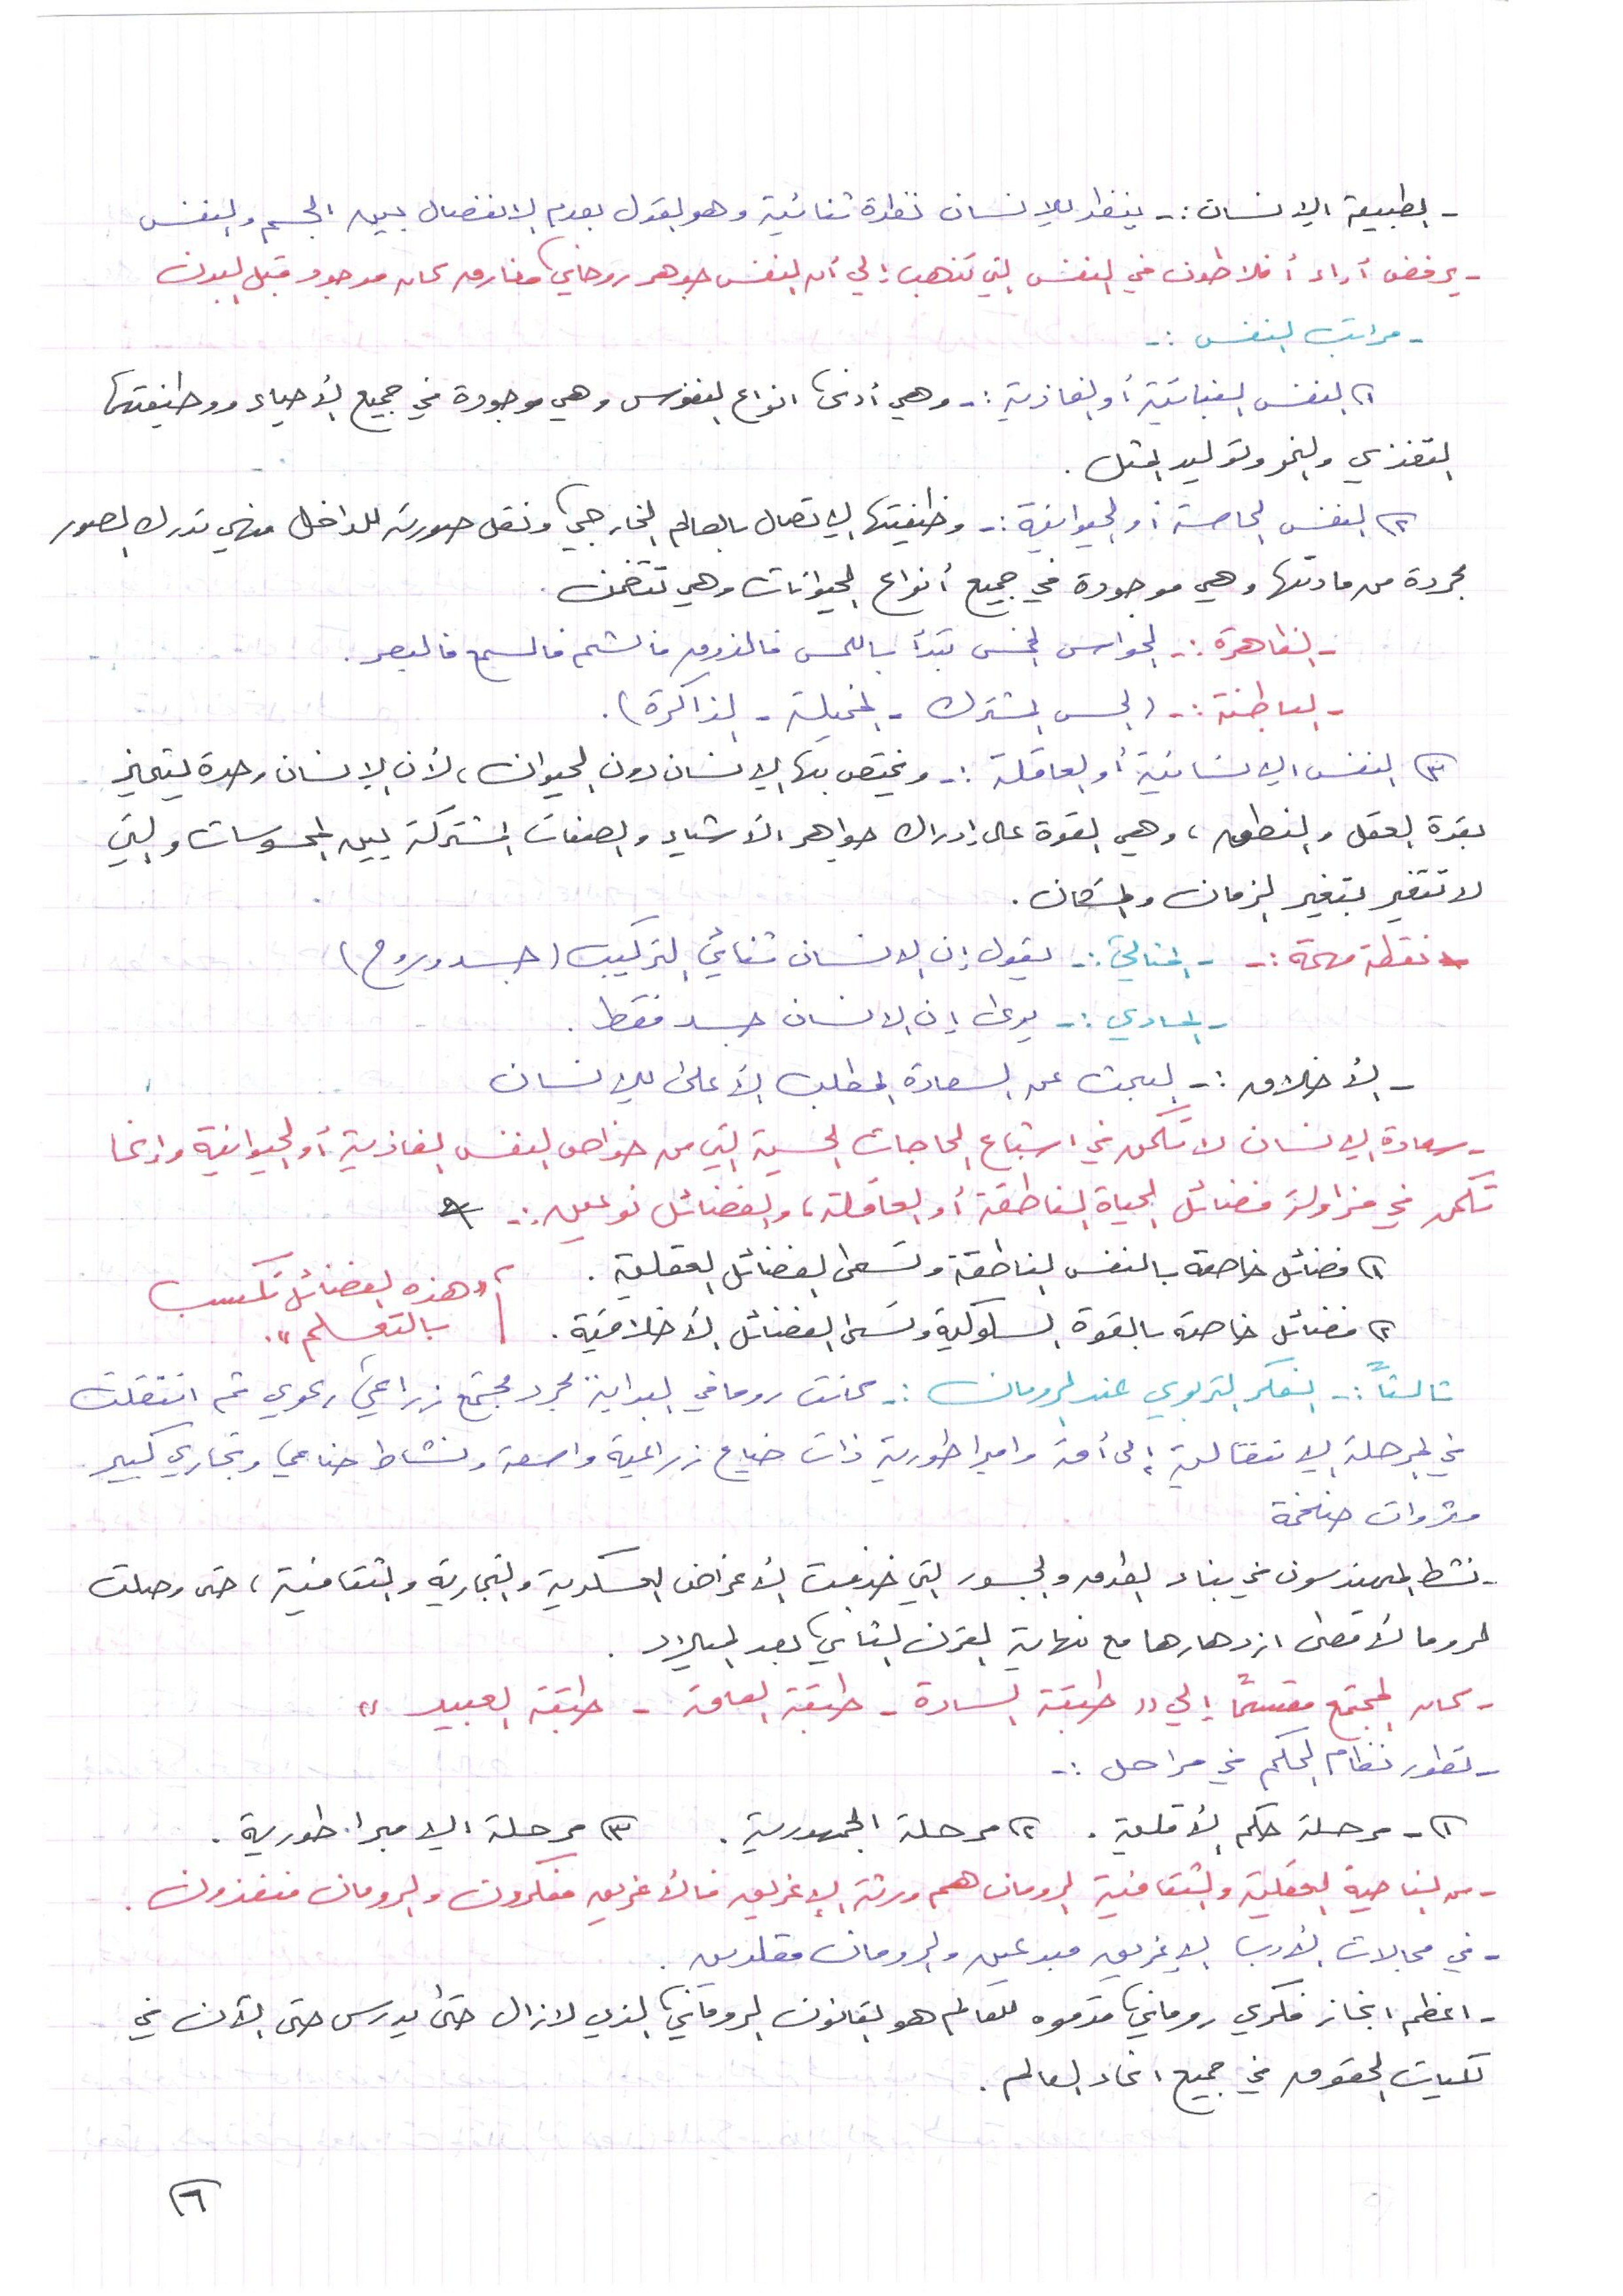 - الطبيعة الإنسان :- ينظر للإنسان نظرة ثنائية وهو القول بعدم الانفصال بين الجسم والنفس
- يرفض أراء أفلاطون في النفس التي تذهب إلي أن النفس جوهر روحاني مفارق كان موجود قبل البدن
- مراتب النفس :-
١) النفس النباتية أو الغاذية :- وهي أدنى انواع النفوس وهي موجودة في جميع الأحياء ووظيفتها
التغذي والنمو وتوليد المثل .
٢) النفس الحاسة أو الحيوانية :- وظيفتها الاتصال بالعالم الخارجي ونقل صورته للداخل فهي تدرك الصور
مجردة من مادتها وهي موجودة في جميع أنواع الحيوانات وهي تتضمن .
- الظاهرة :- الحواس الخمس تبدأ باللمس فالذوق فالشم فالسمع فالبصر .
- الباطنة :- (الحس المشترك - المخيلة - الذاكرة) .
٣) النفس الإنسانية أو العاقلة :- ويختص بها الإنسان دون الحيوان ، لأن الإنسان وحدة يتميز
بقدرة العقل والنطق ، وهي القوة على إدراك جواهر الأشياء والصفات المشتركة بين المحسوسات والتي
لا تتغير بتغير الزمان والمكان .
* نقطة مهمة :- - المثالي :- يقول إن الإنسان ثنائي التركيب (جسد وروح)
- المادي :- يرى إن الإنسان جسد فقط .
- الأخلاق :- البحث عن السعادة المطلب الأعلى للإنسان
- سعادة الإنسان لا تكمن في اشباع الحاجات الحسية التي من خواص النفس الغاذية أو الحيوانية وإنما
تكمن في مزاولة فضائل الحياة الناطقة أو العاقلة ، والفضائل نوعين :-
١) فضائل خاصة بالنفس الناطقة وتسمى الفضائل العقلية .
٢) فضائل خاصة بالقوة السلوكية وتسمى الفضائل الأخلاقية .
"هذه الفضائل تكتسب
بالتعلم" .
ثالثاً :- الفكر التربوي عند الرومان :- كانت روما في البداية مجرد مجتمع زراعي رعوي ثم انتقلت
في المرحلة الانتقالية إلى أمة وامبراطورية ذات ضياع زراعية واسعة ونشاط صناعي وتجاري كبير
وثروات ضخمة
- نشط المهندسون في بناء الطرق والجسور التي خدمت الأغراض العسكرية والتجارية والثقافية ، حتى وصلت
لروما لأقصى ازدهارها مع نهاية القرن الثاني بعد الميلاد .
- كان المجتمع مقسماً إلي " طبقة السادة - طبقة العامة - طبقة العبيد "
- تطور نظام الحكم في مراحل :-
١) - مرحلة حكم الأقلية . ٢) مرحلة الجمهورية . ٣) مرحلة الامبراطورية .
- من الناحية العقلية والثقافية الرومان هم ورثة الإغريق فالأغريق مفكرون والرومان منفذون .
- في مجالات الأدب الإغريق مبدعين والرومان مقلدين .
- اعظم انجاز فكري روماني قدموه للعالم هو القانون الروماني الذي لازال حتى يدرس حتى الآن في
كليات الحقوق في جميع انحاء العالم .
٦)